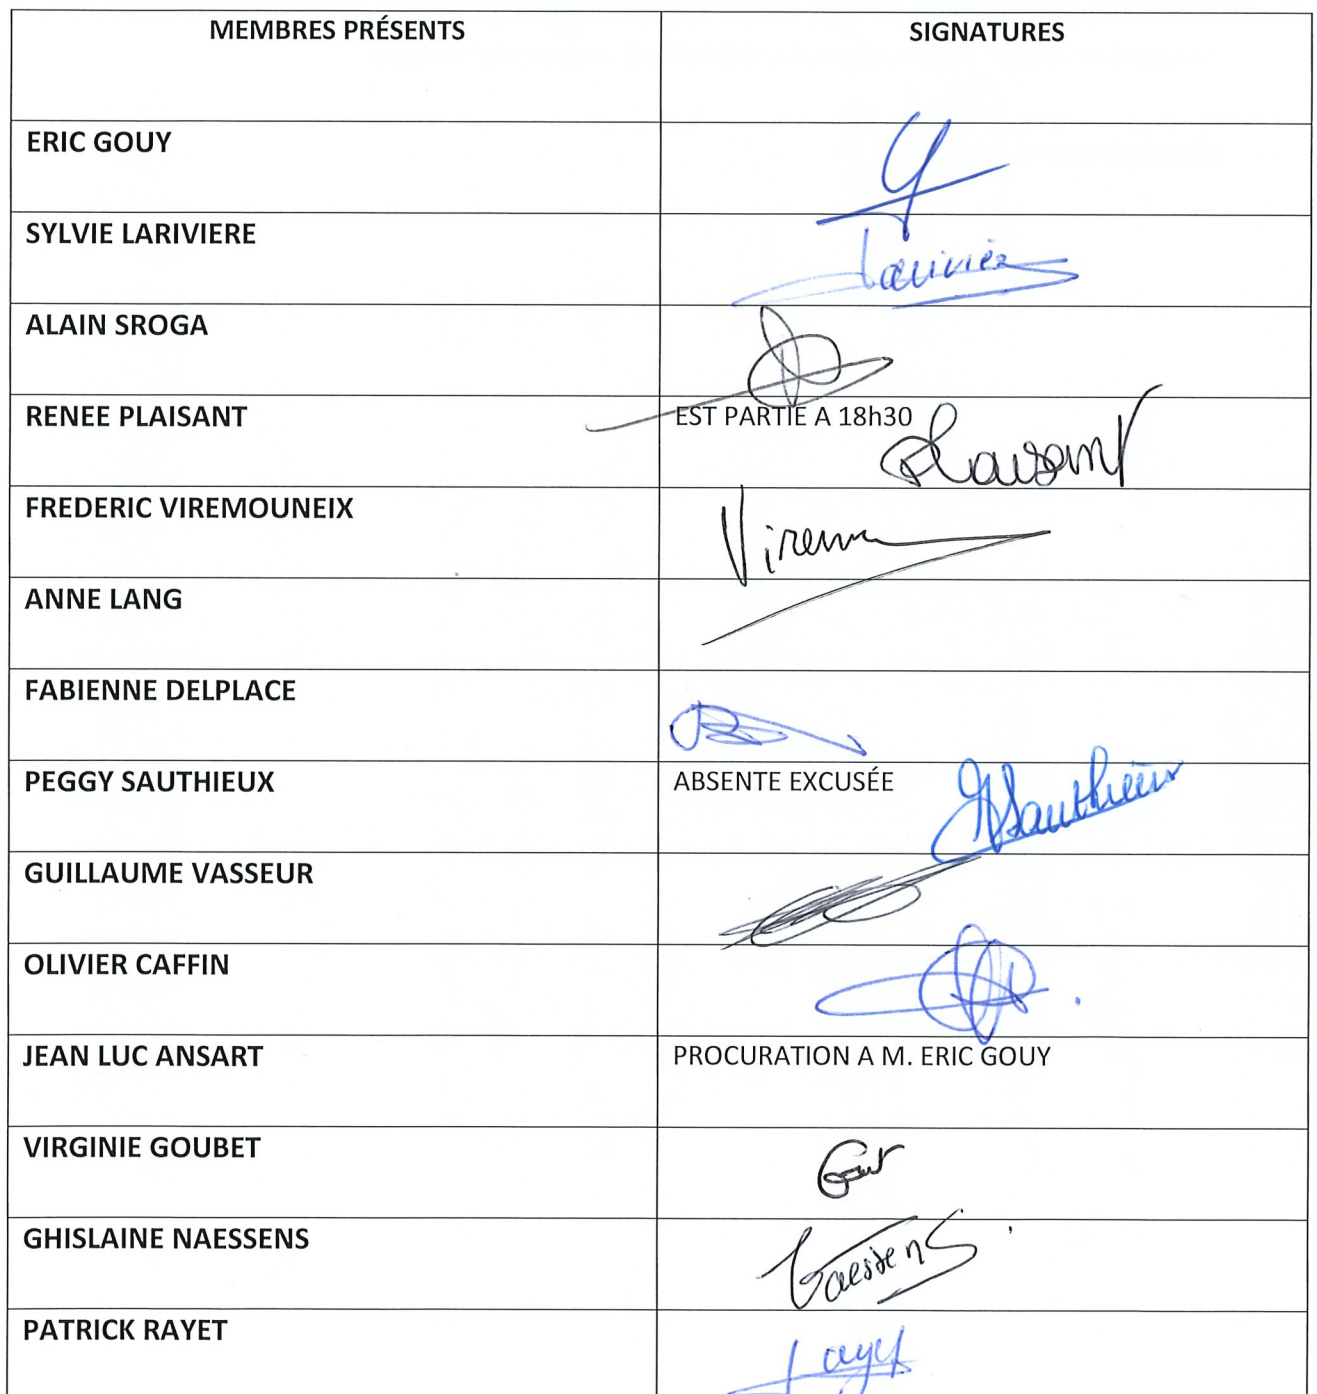 MEMBRES PRÉSENTS SIGNATURES
ERIC GOUY
SYLVIE LARIVIERE
Lariviére
ALAIN SROGA
RENEE PLAISANT EST PARTIE A 18h30
Plaisant
FREDERIC VIREMOUNEIX
Virem
ANNE LANG
FABIENNE DELPLACE
PEGGY SAUTHIEUX ABSENTE EXCUSÉE
Sauthieux
GUILLAUME VASSEUR
OLIVIER CAFFIN
JEAN LUC ANSART PROCURATION A M. ERIC GOUY
VIRGINIE GOUBET
GHISLAINE NAESSENS
Naessens
PATRICK RAYET
Rayet